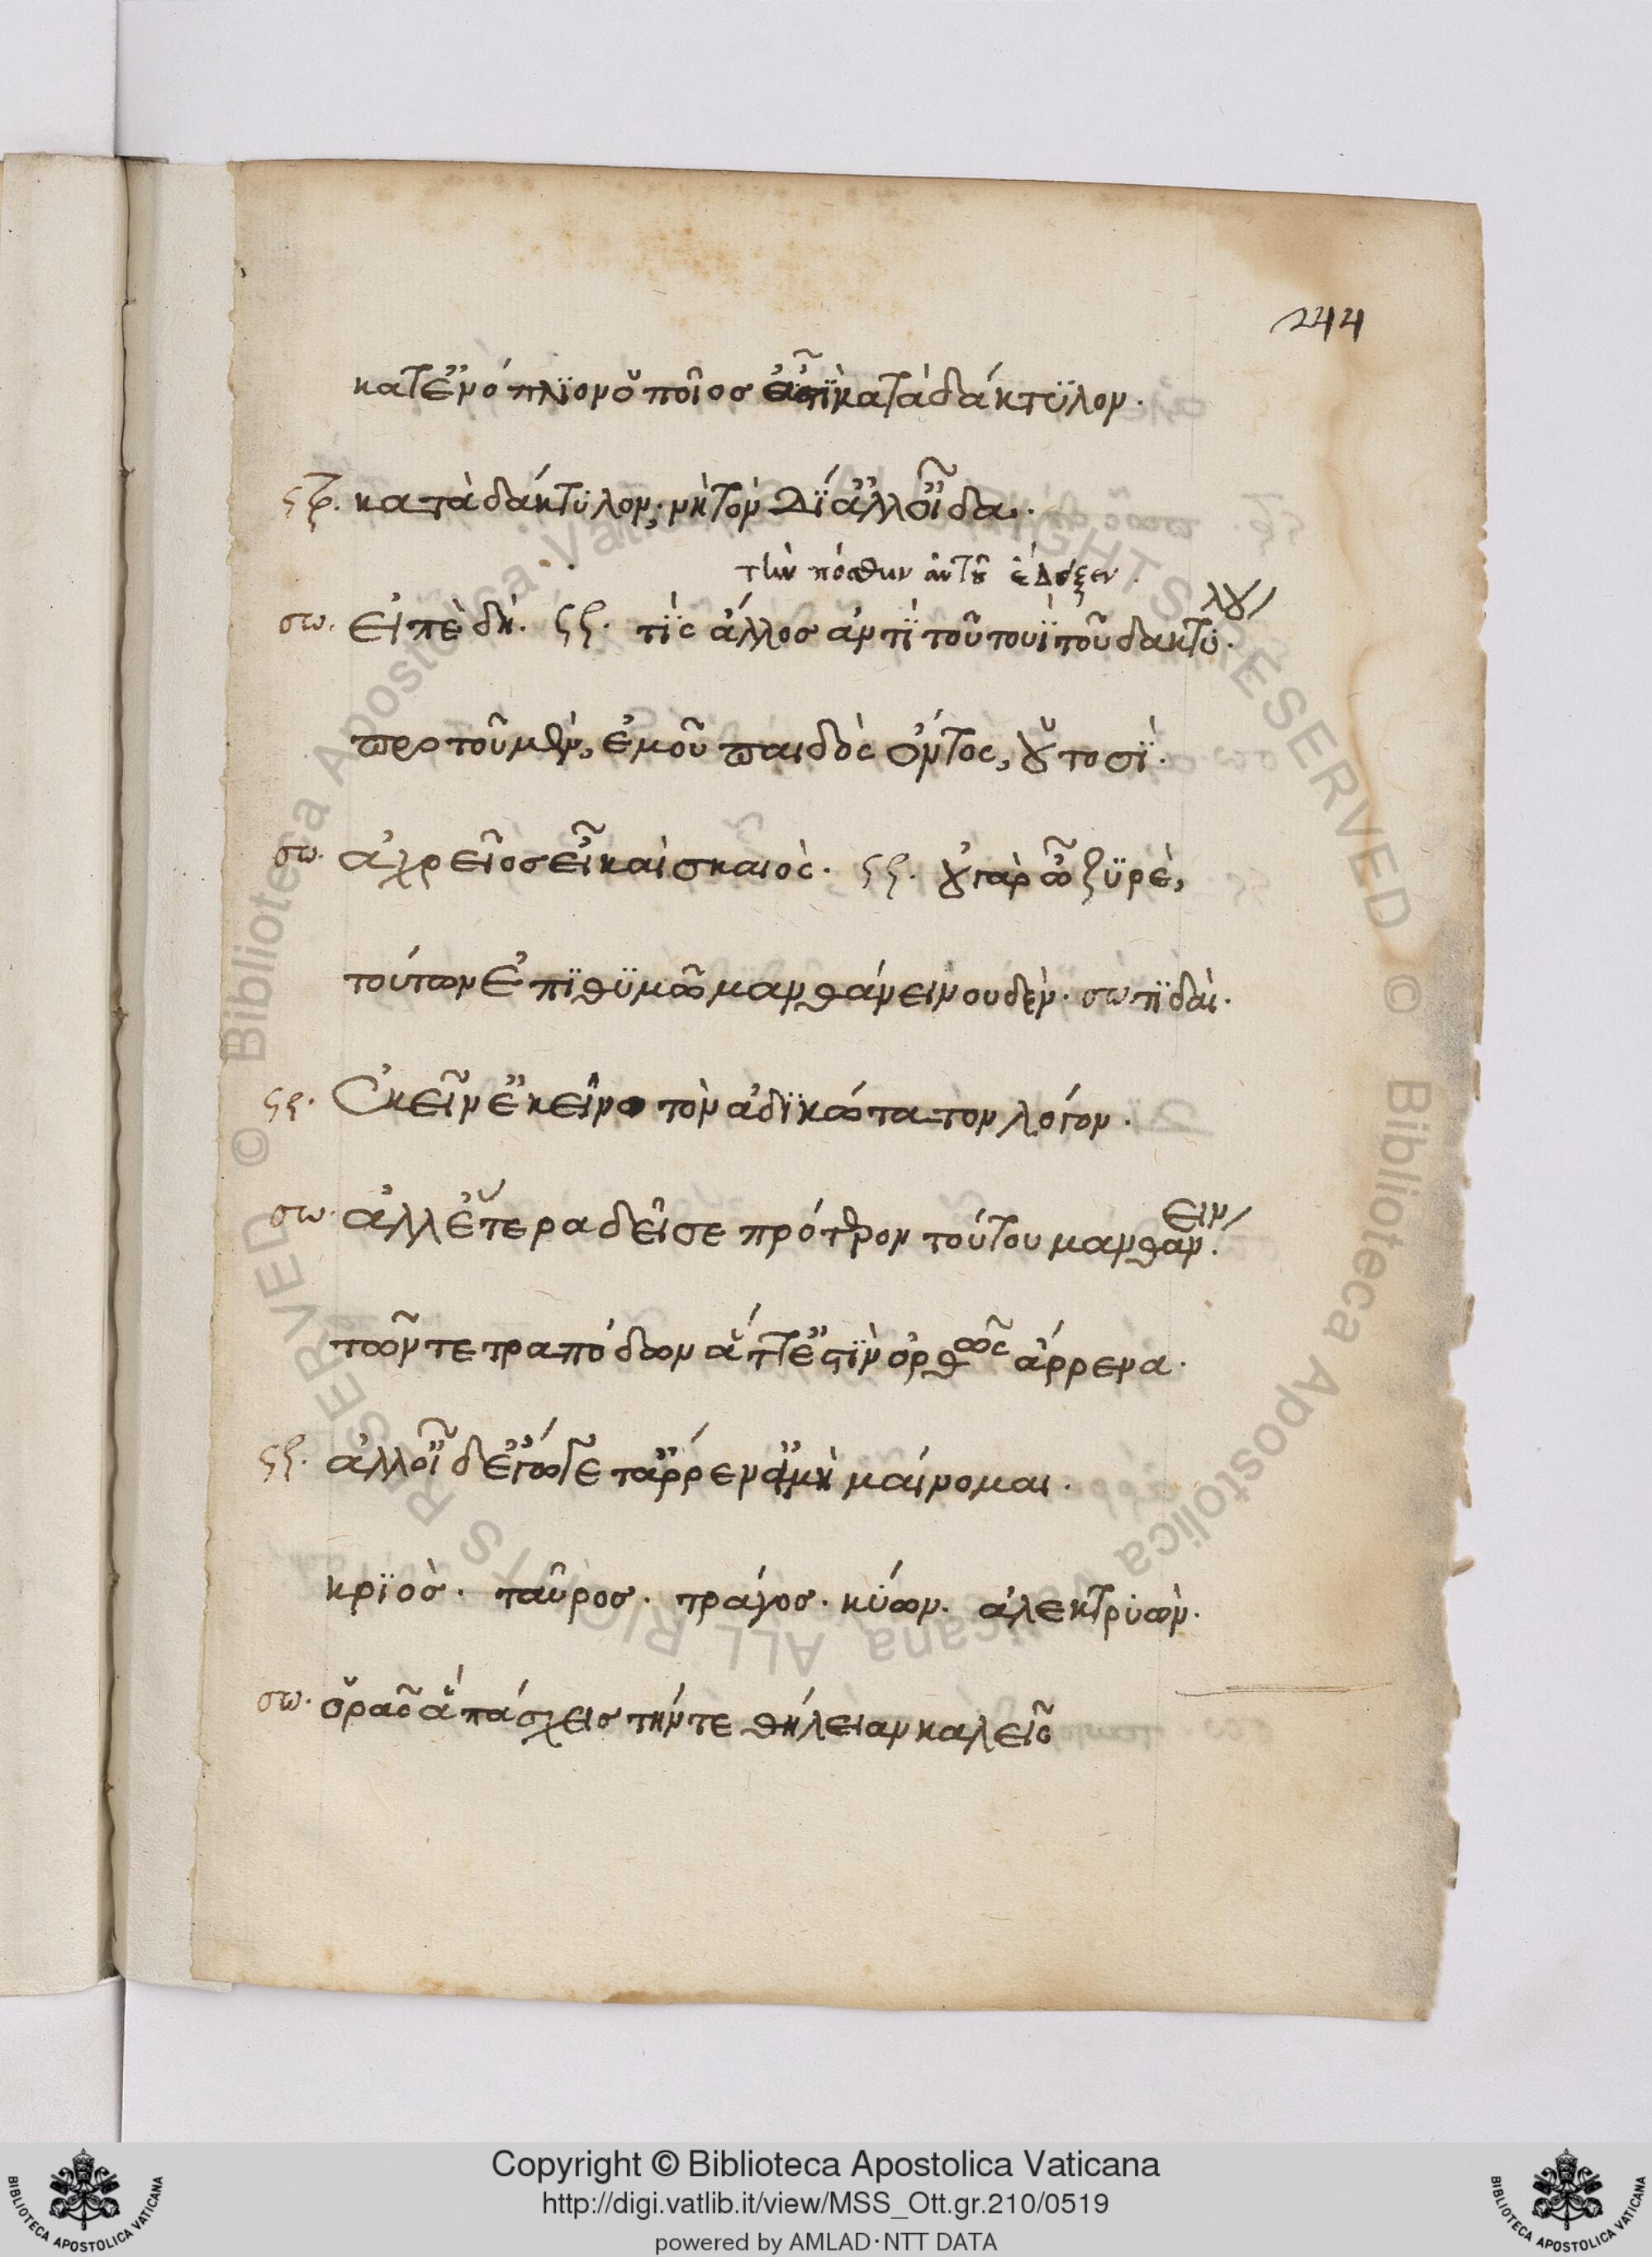 244
κατ' ἐνόπλιον οὐ ποῖος ἐστὶ κατὰ δάκτυλον.
στρ. κατὰ δάκτυλον; νὴ τὸν Δί' ἀλλ' οἶδα.
τὴν πόσθην αὐτοῦ ἔδειξεν.
σω. εἰπὲ δή. στρ. τίς ἄλλος ἀντὶ τουτουῒ τοῦ δακτύλου
πρὸ τοῦ μὲν, ἐμοῦ παιδὸς ὄντος, οὑτοσΐ.
σω. ἀχρεῖος εἶ καὶ σκαιός. στρ. οὐ γὰρ ὦ ζυρὲ,
τούτων ἐπιθυμῶ μανθάνειν οὐδέν. σω τί δαί.
στρ. ἐκεῖν' ἐκεῖνο τὸν ἀδικώτατον λόγον.
σω. ἀλλ' ἕτερα δεῖ σε πρότερον τούτου μανθάνειν.
τῶν τετραπόδων ἅττ' ἐστὶν ὀρθῶς ἄρρενα.
στρ. ἀλλ' οἶδ' ἔγωγε τἄρρεν' εἰ μὴ μαίνομαι.
κριός. ταῦρος. τράγος. κύων. ἀλεκτρυών.
σω. ὁρᾶς ἃ πάσχεις τήν τε θήλειαν καλεῖς
Copyright © Biblioteca Apostolica Vaticana
http://digi.vatlib.it/view/MSS_Ott.gr.210/0519
powered by AMLAD·NTT DATA